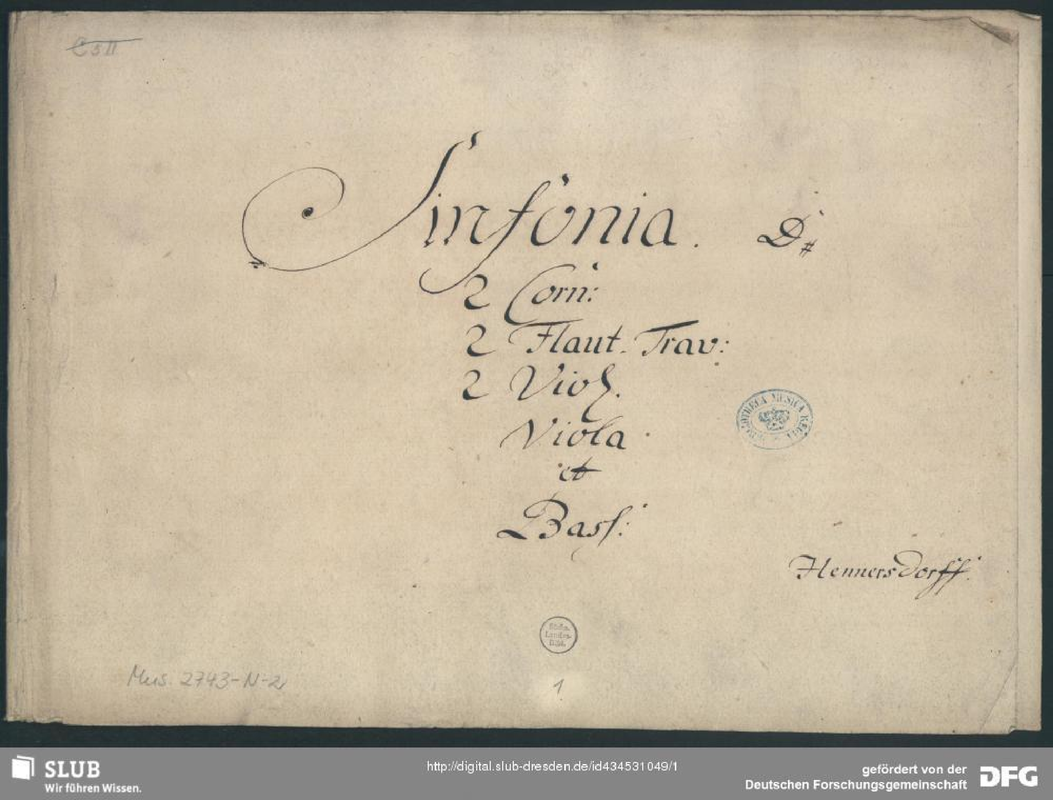 C 5 II
Sinfonia. D#
2 Corn:
2 Flaut. Trav:
2 Viol.
Viola.
et
Bass:
BIBLIOTHECA MUSICA REGIA
Hennersdorff.
Sächs.
Landes-
Bibl.
Mus. 2743-N-2
1
SLUB
Wir führen Wissen.
http://digital.slub-dresden.de/id434531049/1
gefördert von der
Deutschen Forschungsgemeinschaft
DFG